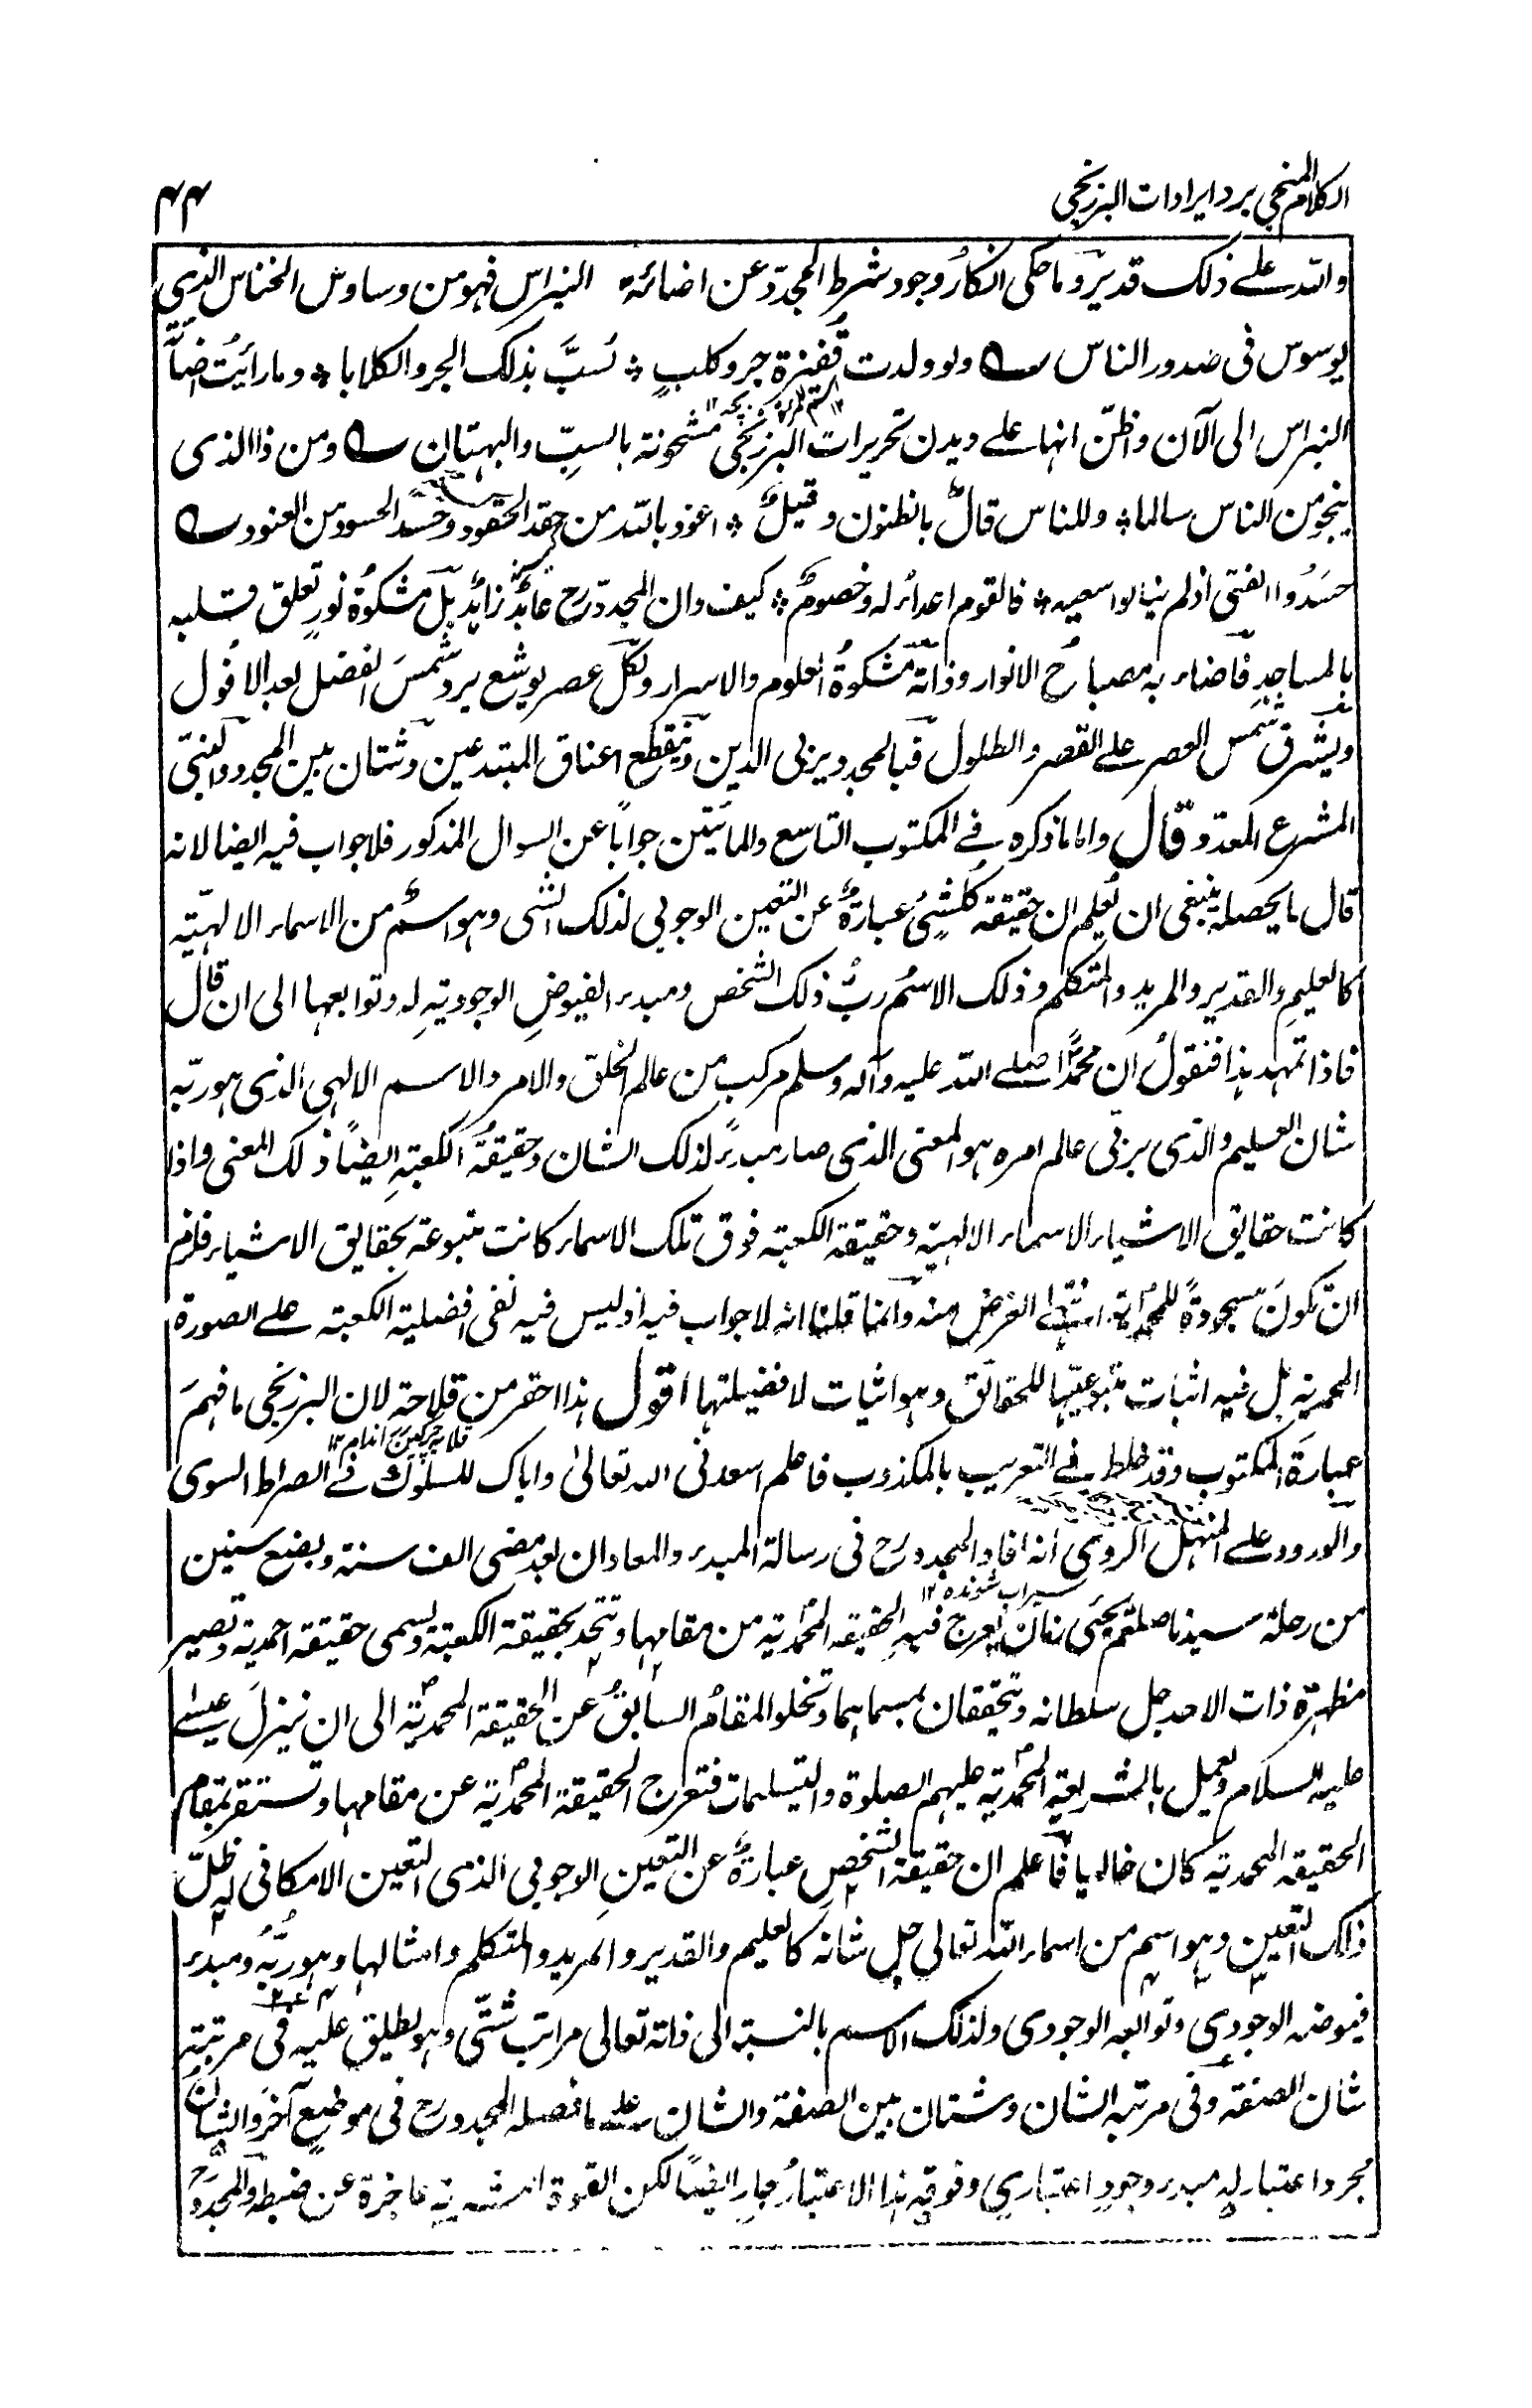 الكلام المنجي برد ايرادات البرزنجي
۴۴
والله على ذلك قدير وما حكى انكارُ وجود شرط المجدّد عن اضائة النبراس فهو من وساوس الخناس الذي
يوسوس في صدور الناس ولو ولدت قُفيزة جرو كلبٍ ۞ لسُبَّ بذلك الجرو الكلابا ۞ وما رأيتُ اضاءة
النبراس الى الآن واظنّ انها على ديدن تحريرات البرزنجي مشحونة بالسبِّ والبهتان ومن ذا الذي
ينجو من الناس سالما ۞ وللناس قالٌ بالظنون وقيلٌ ۞ اعوذ بالله من حِقد الحقود وحَسَد الحسود من العنود
حَسَدُوا الفتى اذ لم ينالوا سعيه ۞ فالقوم اعداءٌ له وخصومٌ ۞ كيف وان المجدّد رح عابدٌ زائدٌ بل مشكوٰةُ نورٍ تعلق قلبه
بالمساجدِ فاضاء به مصباحُ الانوار وذاته مشكوٰةُ العلوم والاسرار ولكل عصر يوشع يرد شمسَ الفضل بعد الافول
ويشرق شمس العصر على القصر والطلول فبالمجدد يربى الدين وينقطع اعناق المبتدعين وشتان بين المجدد والنبي
المشرع المعدّد قال واما ما ذكره في المكتوب التاسع والمائتين جواباً عن السوال المذكور فلا جواب فيه ايضا لانه
قال ما يحصله ينبغي ان يُعلم ان حقيقة كلشئٍ عبارةٌ عن التعين الوجوبي لذلك الشى وهو اسمٌ من الاسماء الالهيّه
كالعليمِ والقدير والمريد والمتكلم وذلك الاسُم ربُّ ذلك الشخص ومبدء الفيوضِ الوجوديةِ له وتوابعها الى ان قال
فاذا تمهد هذا فنقولُ ان محمدًا صلى الله عليه وآله وسلم مركب من عالم الخلق والامر والاسم الالهي الذي هو ربّه
شان العليم والذي يربّي عالم امره هو المعنى الذي صار مبدءً لذلك الشان وحقيقةُ الكعبةِ ايضاً ذلك المعنى واذا
كانت حقايق الاشياء الاسماء الالهيّة وحقيقة الكعبته فوق تلك الاسماء كانت متبوعة بحقايق الاشياء فلزم
ان تكونَ مسجودةً للمحمدية انتهى الغرض منه وانما قلنا انه لا جواب فيه اذ ليس فيه نفى افضلية الكعبته على الصورة
المحمدية بل فيه اثبات متبوعيّتها للحقائق وهو اثبات لافضيلتها اقول هذا احقر من قلاحة لان البرزنجي ما فهمَ
عبارَة المكتوب وقد خلط في التعريب بالمكذوب فاعلم اسعدنى الله تعالىٰ واياك للسلوك في الصراط السوى
والورود على المنهل الروى انه افاد المجدد رح في رسالة المبدء والمعاد ان بعد مضى الف سنة وبضع سنين
سيراب شونده ۱۲
من رحلة سيدنا صلعم يجئ زمان يعرج فيهِ الحقيقة المحمّدية من مقامها وتتحد بحقيقة الكعبة ويسمى حقيقة احمدية وتصير
مظهرة ذات الاحد جل سلطانه ويتحققان بمسماهما وتخلو المقامُ السابقُ عن الحقيقة المحمديّة الى ان ينزلَ عيسى
عليه السلام ويعمل بالشريعة المحمّدية عليهم الصلوة والتسليمات فتعرج الحقيقة المحمّدية عن مقامها وتستقر بمقام
الحقيقه المحمدية كان خاليا فاعلم ان حقيقة الشخصِ عبارةٌ عن التعينِ الوجوبي الذي التعين الامكاني له ظلّ
ذاك التعين وهو اسم من اسماء الله تعالى جل شانه كالعليم والقدير والمريد والمتكلم وامثالها وهو ربُّهُ ومبدء
فيوضه الوجودي وتوابعه الوجودى ولذلك الاسم بالنسبة الى ذاته تعالى مراتب شتّى وهو يطلق عليه فى مرتبته
شان الصفة وفى مرتبة الشان وشتان بين الصفة والشان على ما فصله المجدد رح في موضعٍ آخرَ والشان
مجرد اعتبار له مبدء وجودٍ اعتباري وفوقه هذا الاعتبارُ جارٍ ايضًا لكن القوة البشرية عاجزة عن ضبطه والمجددُ رح